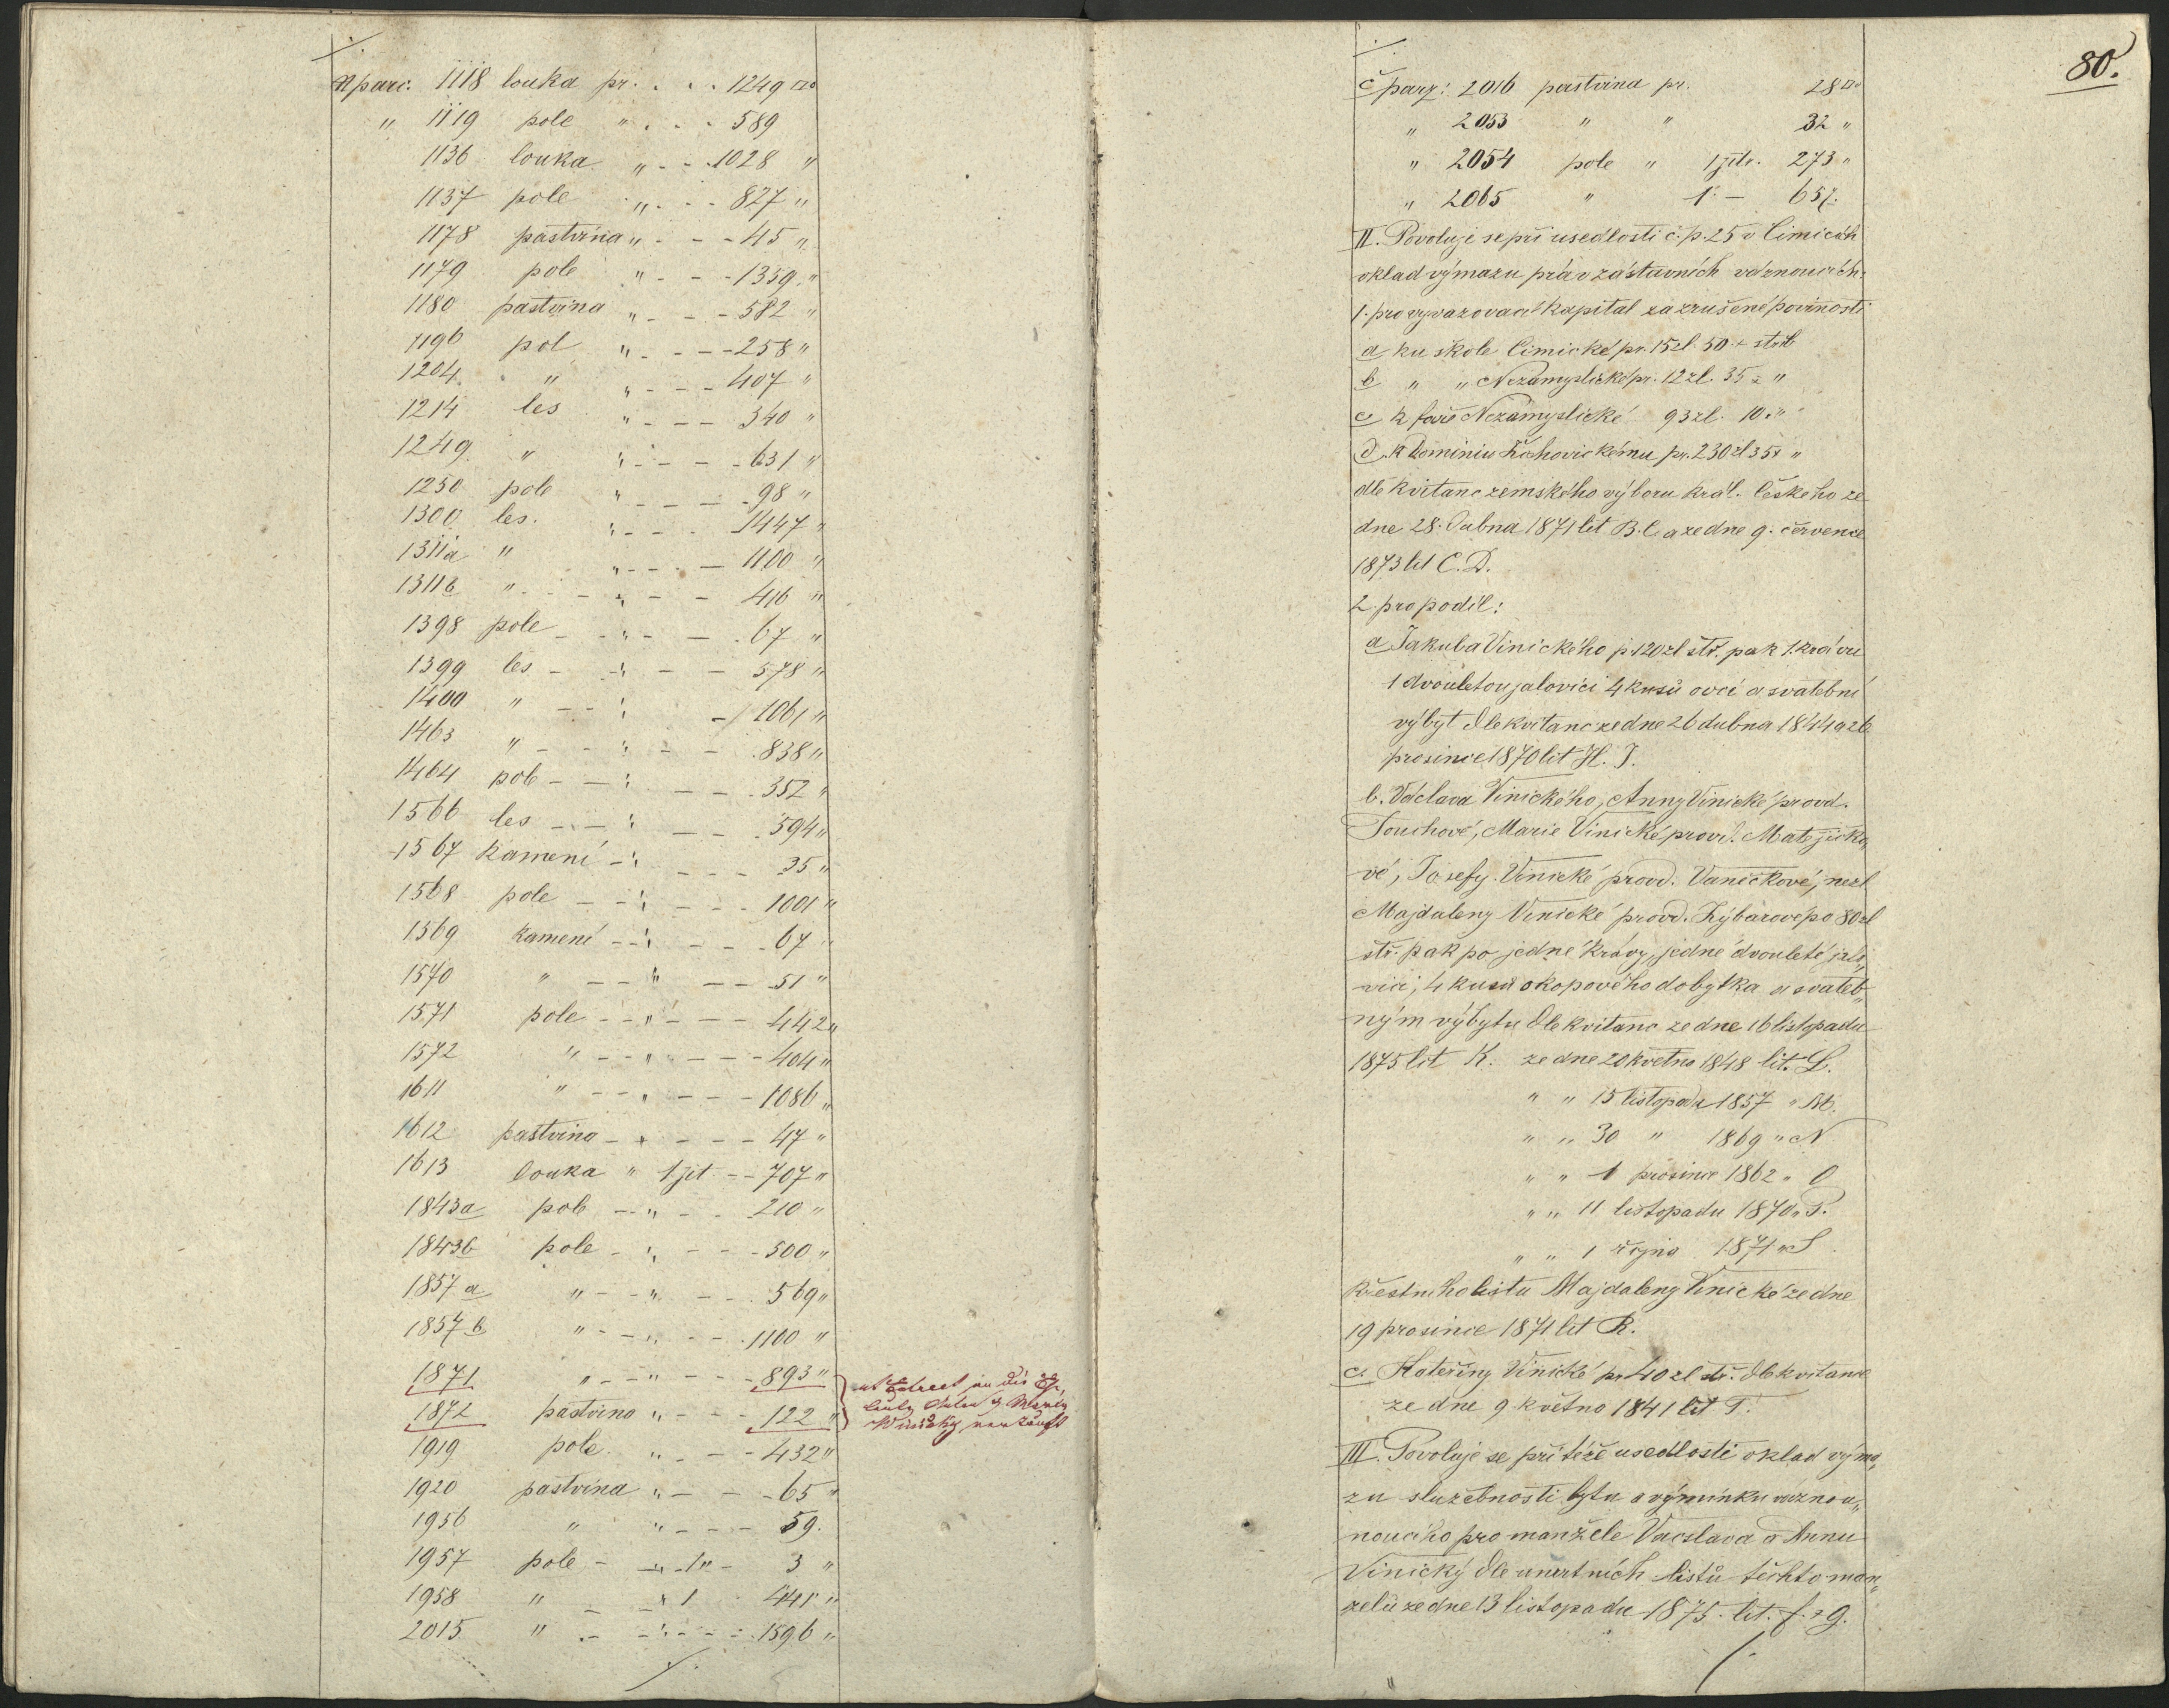 N parc. 1118 louka pr. . . . 1249 □o
" 1119 pole " . . . 589
1136 louka " - - 1028 "
1137 pole " . - - 827 "
1178 pastvina " - - - 45 "
1179 pole " - - - 1359 "
1180 pastvina " - - - 582 "
1196 pol " - - - - 258 "
1204 " " - - - 407 "
1214 les " - - - 340 "
1249 " " - - - - 631 "
1250 pole " - - - - 98 "
1300 les. " - - . 1447 "
1311a " " - - - 1100 "
1311b " - - - " - - 416 "
1398 pole - - " - - . 67 "
1399 les - - " - - 578 "
1400 " - - " - 1061 "
1463 " - - " - - 838 "
1464 pole - - " - - . 352 "
1566 les - - - " - - . 594 "
1567 kamení - " - - - 35 "
1568 pole - - " - - - 1001 "
1569 kamení - - " - - . 67 "
1570 " - - " - - 51 "
1571 pole - - " - - - 442 "
1572 " - - " - - - - 404 "
1611 " - - " - - - 1086 "
1612 pastvina - " - - - 47 "
1613 louka " 1 jit - - 707 "
1843a pole - - " - - 210 "
1843b pole - " - - - 500 "
1857 a " - - " - - - 569 "
1857 b " - - " - - . 1100 "
1871 " - - " - - - 893 "
1872 pastvina " - - - 122 "
Marie
Winický verkauft
1919 pole " - - - 432 "
1920 pastvina " - - - 65 "
1956 " " - - - 59.
1957 pole - " - 1 " - 3 "
1958 " - " 1 441 "
2015 " - - " - - - 1596 "
80.
č parz: 2016 pastvina pr. 28 □o
" 2053 " " 32 "
" 2054 pole " 1 jitr. 273 "
" 2065 " 1 " - 657.
II. Povoluje se při usedlosti č. p. 25 v Čimicích
oklad výmazu práv zástavních váznoucích.
1. pro vyvazovací kapital za zrušené povinnosti
a ku škole Čimické pr. 15 zl. 50 x stř.
b " " Nezamyslické pr. 12 zl. 35 x "
c k faře Nezamyslické 93 zl. 10 " "
d. k Dominiu Žichovickému pr. 230 zl 35 x "
dlé kvitanc zemského výboru král. českého ze
dne 28. dubna 1871 lit B. C. a ze dne 9. července
1873 lit C. D.
2. pro podíl:
a Jakuba Vinického p. 120 zl stř. pak 1. krávu
1 dvouletou jalovici 4 kusů ovcí a svatební
výbyt dle kvitanc ze dne 26 dubna 1844 a 26
prosince 1870 lit H. J.
b. Václava Vinického, Anny Vinické provd.
Touchové, Marie Vinické provd. Matějičko„
vé, Josefy Vinické provd. Vaněčkové, nezl
Majdaleny Vinické provd. Rybarové po 80 zl
stř. pak po jedné krávy, jedné dvouleté jalo„
vici, 4 kusů skopového dobytka a svateb„
ným výbytu dle kvitanc ze dne 16 listopadu
1875 lit K. ze dne 20 května 1848 lit. L.
" " 15 listopadu 1857 " M.
" " 30 " 1869 " N
" " 1 prosince 1862 " O
" " 11 listopadu 1870 " P.
" " 1 října 1871 " S.
křestního listu Majdaleny Vinické ze dne
19 prosince 1871 lit R.
c. Kateřiny Vinické pr 40 zl stř. dle kvitance
ze dne 9 května 1841 lit T.
III. Povoluje se při téže usedlosti oklad výma„
zu služebnosti bytu a výminku váznou„
noucího pro manžele Vácslava a Annu
Vinický dle úmrtních listů těchto man„
želů ze dne 13 listopadu 1875. lit. f. & g.